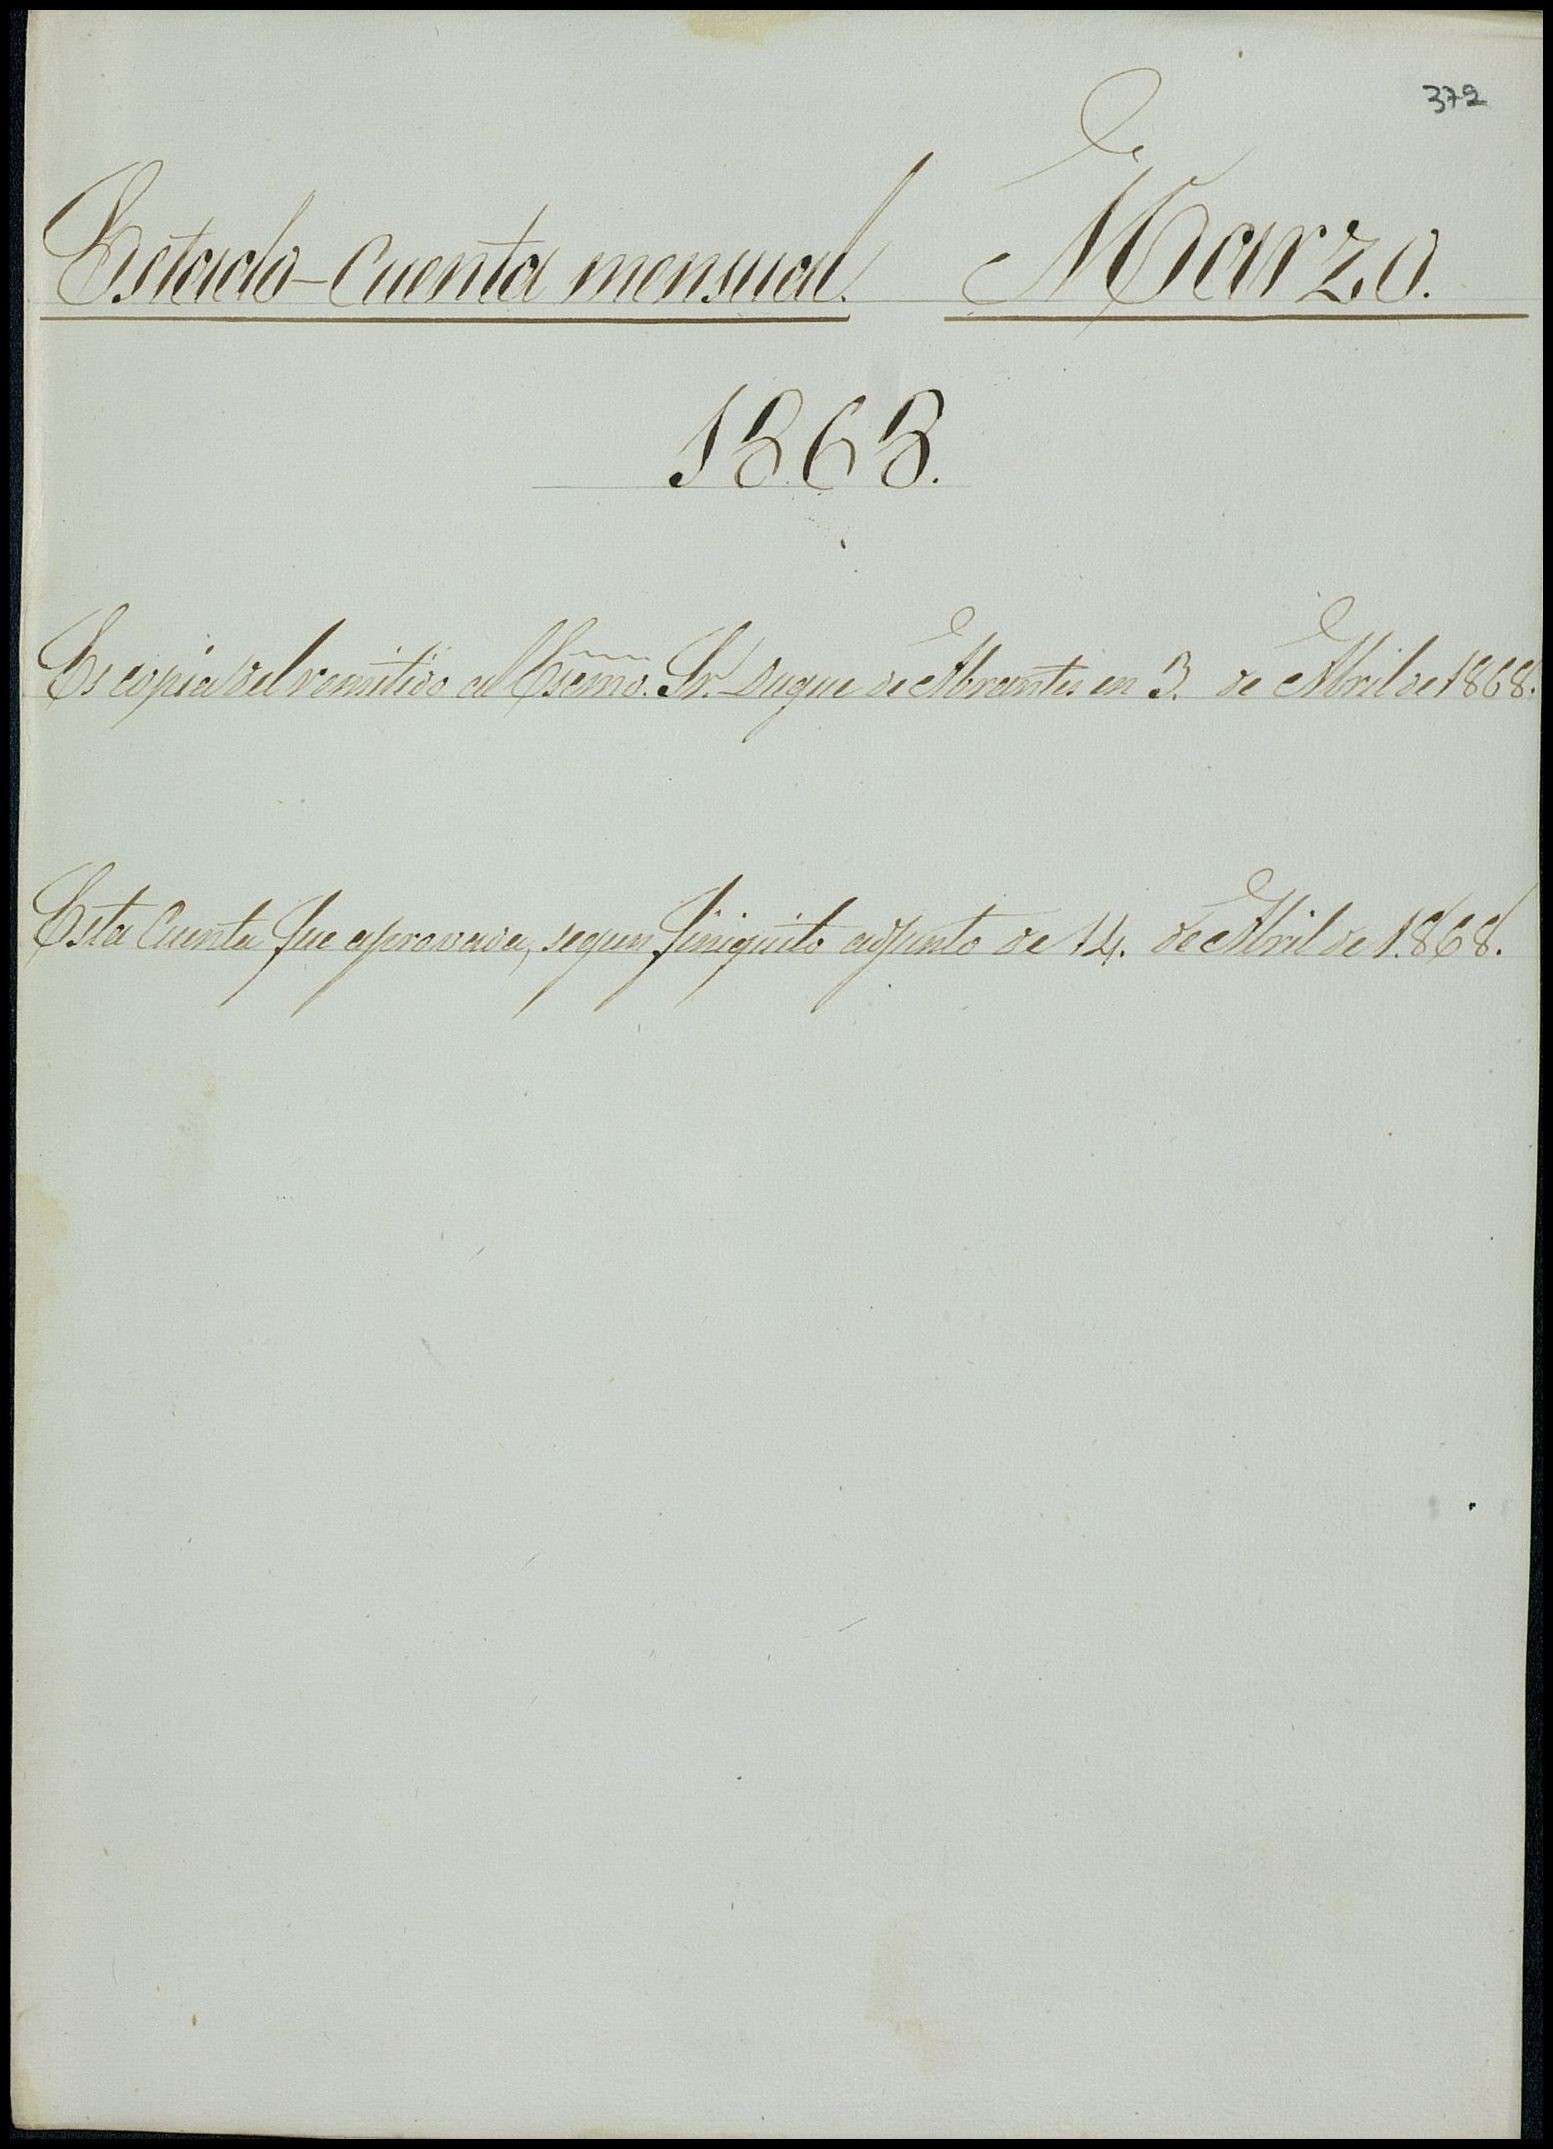 372
Estado-Cuenta mensual. Marzo.
1868.
Es copia del remitido al Escmo. Sr. Duque de Abrantes en 3. de Abril de 1868.
Esta Cuenta fue aprovada, segun finiquito adjunto de 14. de Abril de 1868.